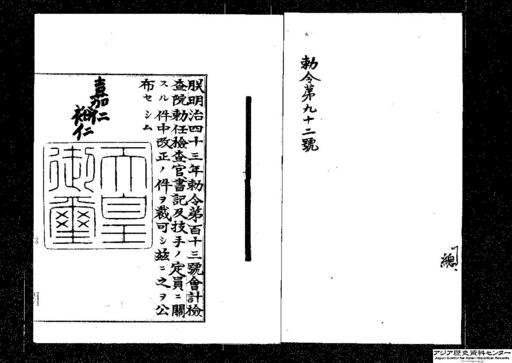 勅令第九十二號
朕明治四十三年勅令第百十三號會計檢
査院勅任檢査官書記及技手ノ定員ニ關
スル件中改正ノ件ヲ裁可シ玆ニ之ヲ公
布セシム
嘉仁
裕仁
天皇
御璽
アジア歴史資料センター
Japan Center for Asian Historical Records